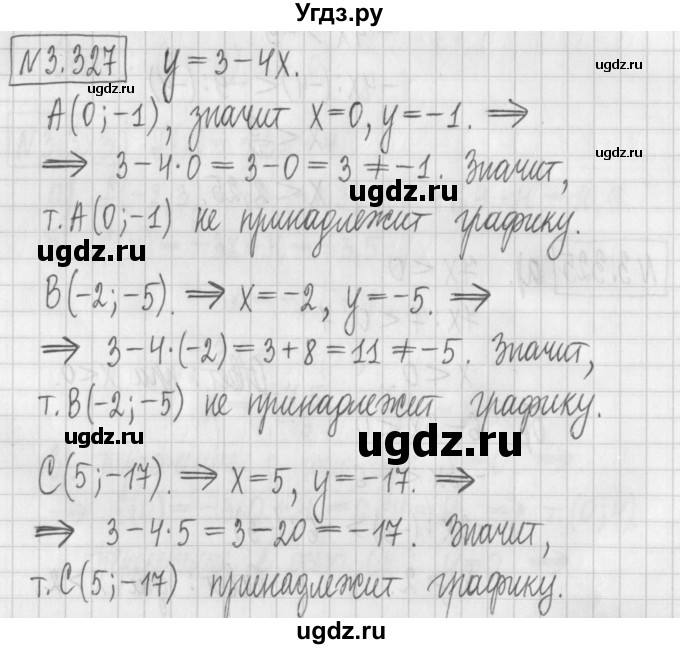 Угдз.ру
N 3.327 y = 3 - 4x.
угдз.ru
ugdz.ru
A(0; -1), значит x = 0, y = -1. ⟹
ugdz.ru
⟹ 3 - 4·0 = 3 - 0 = 3 ≠ -1. Значит,
ugdz.ru
т. A(0; -1) не принадлежит графику.
ugdz.ru
B(-2; -5). ⟹ x = -2, y = -5. ⟹
⟹ 3 - 4·(-2) = 3 + 8 = 11 ≠ -5. Значит,
т. B(-2; -5) не принадлежит графику.
ugdz.ru
C(5; -17). ⟹ x = 5, y = -17. ⟹
⟹ 3 - 4·5 = 3 - 20 = -17. Значит,
т. C(5; -17) принадлежит графику.
ugdz.ru